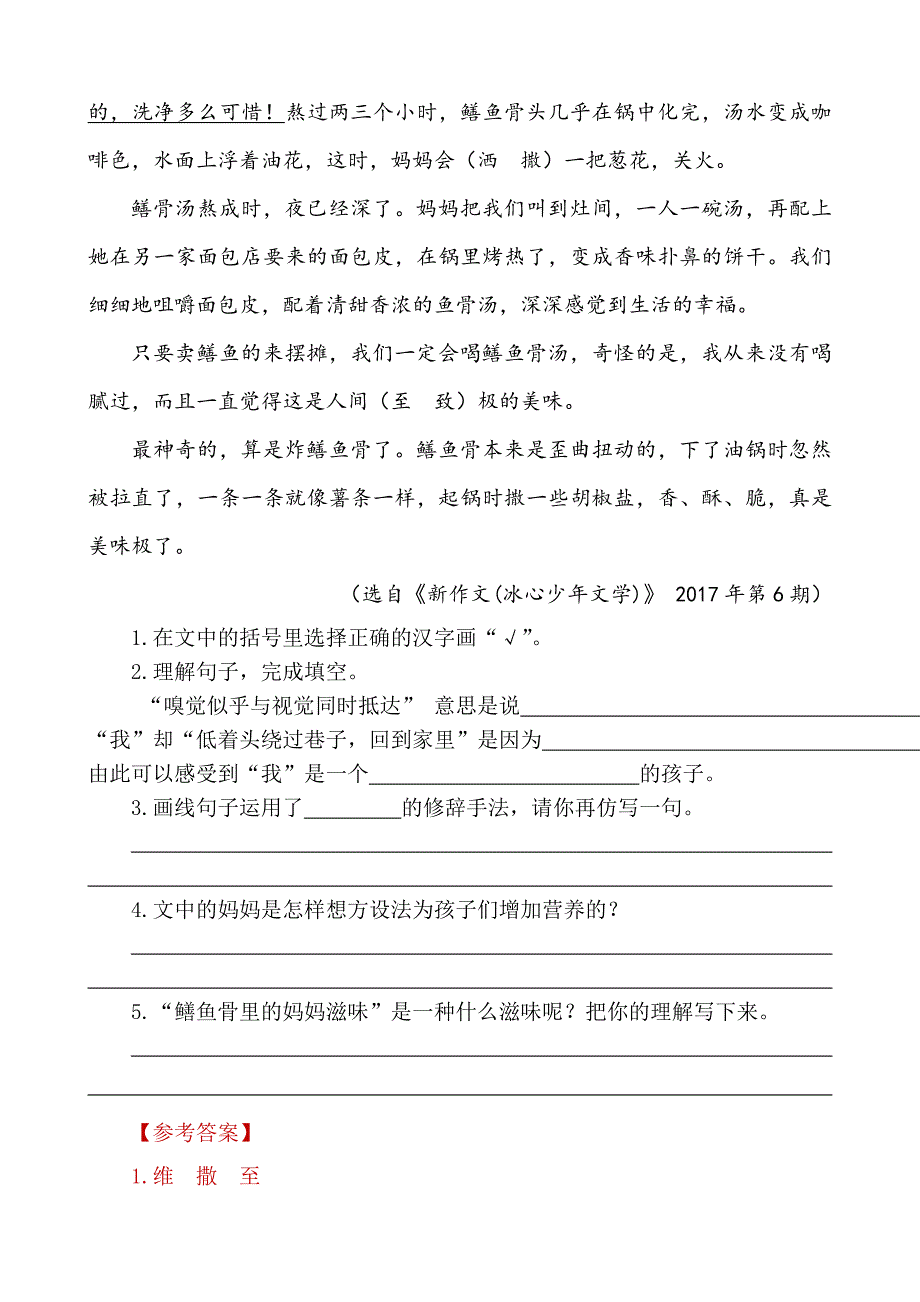 的，洗净多么可惜！熬过两三个小时，鳝鱼骨头几乎在锅中化完，汤水变成咖
啡色，水面上浮着油花，这时，妈妈会（洒　撒）一把葱花，关火。
鳝骨汤熬成时，夜已经深了。妈妈把我们叫到灶间，一人一碗汤，再配上
她在另一家面包店要来的面包皮，在锅里烤热了，变成香味扑鼻的饼干。我们
细细地咀嚼面包皮，配着清甜香浓的鱼骨汤，深深感觉到生活的幸福。
只要卖鳝鱼的来摆摊，我们一定会喝鳝鱼骨汤，奇怪的是，我从来没有喝
腻过，而且一直觉得这是人间（至　致）极的美味。
最神奇的，算是炸鳝鱼骨了。鳝鱼骨本来是歪曲扭动的，下了油锅时忽然
被拉直了，一条一条就像薯条一样，起锅时撒一些胡椒盐，香、酥、脆，真是
美味极了。
（选自《新作文(冰心少年文学)》 2017年第6期）
1.在文中的括号里选择正确的汉字画“√”。
2.理解句子，完成填空。
“嗅觉似乎与视觉同时抵达” 意思是说
“我”却“低着头绕过巷子，回到家里”是因为
由此可以感受到“我”是一个________的孩子。
3.画线句子运用了________的修辞手法，请你再仿写一句。
4.文中的妈妈是怎样想方设法为孩子们增加营养的？
5.“鳝鱼骨里的妈妈滋味”是一种什么滋味呢？把你的理解写下来。
【参考答案】
1.维　撒　至